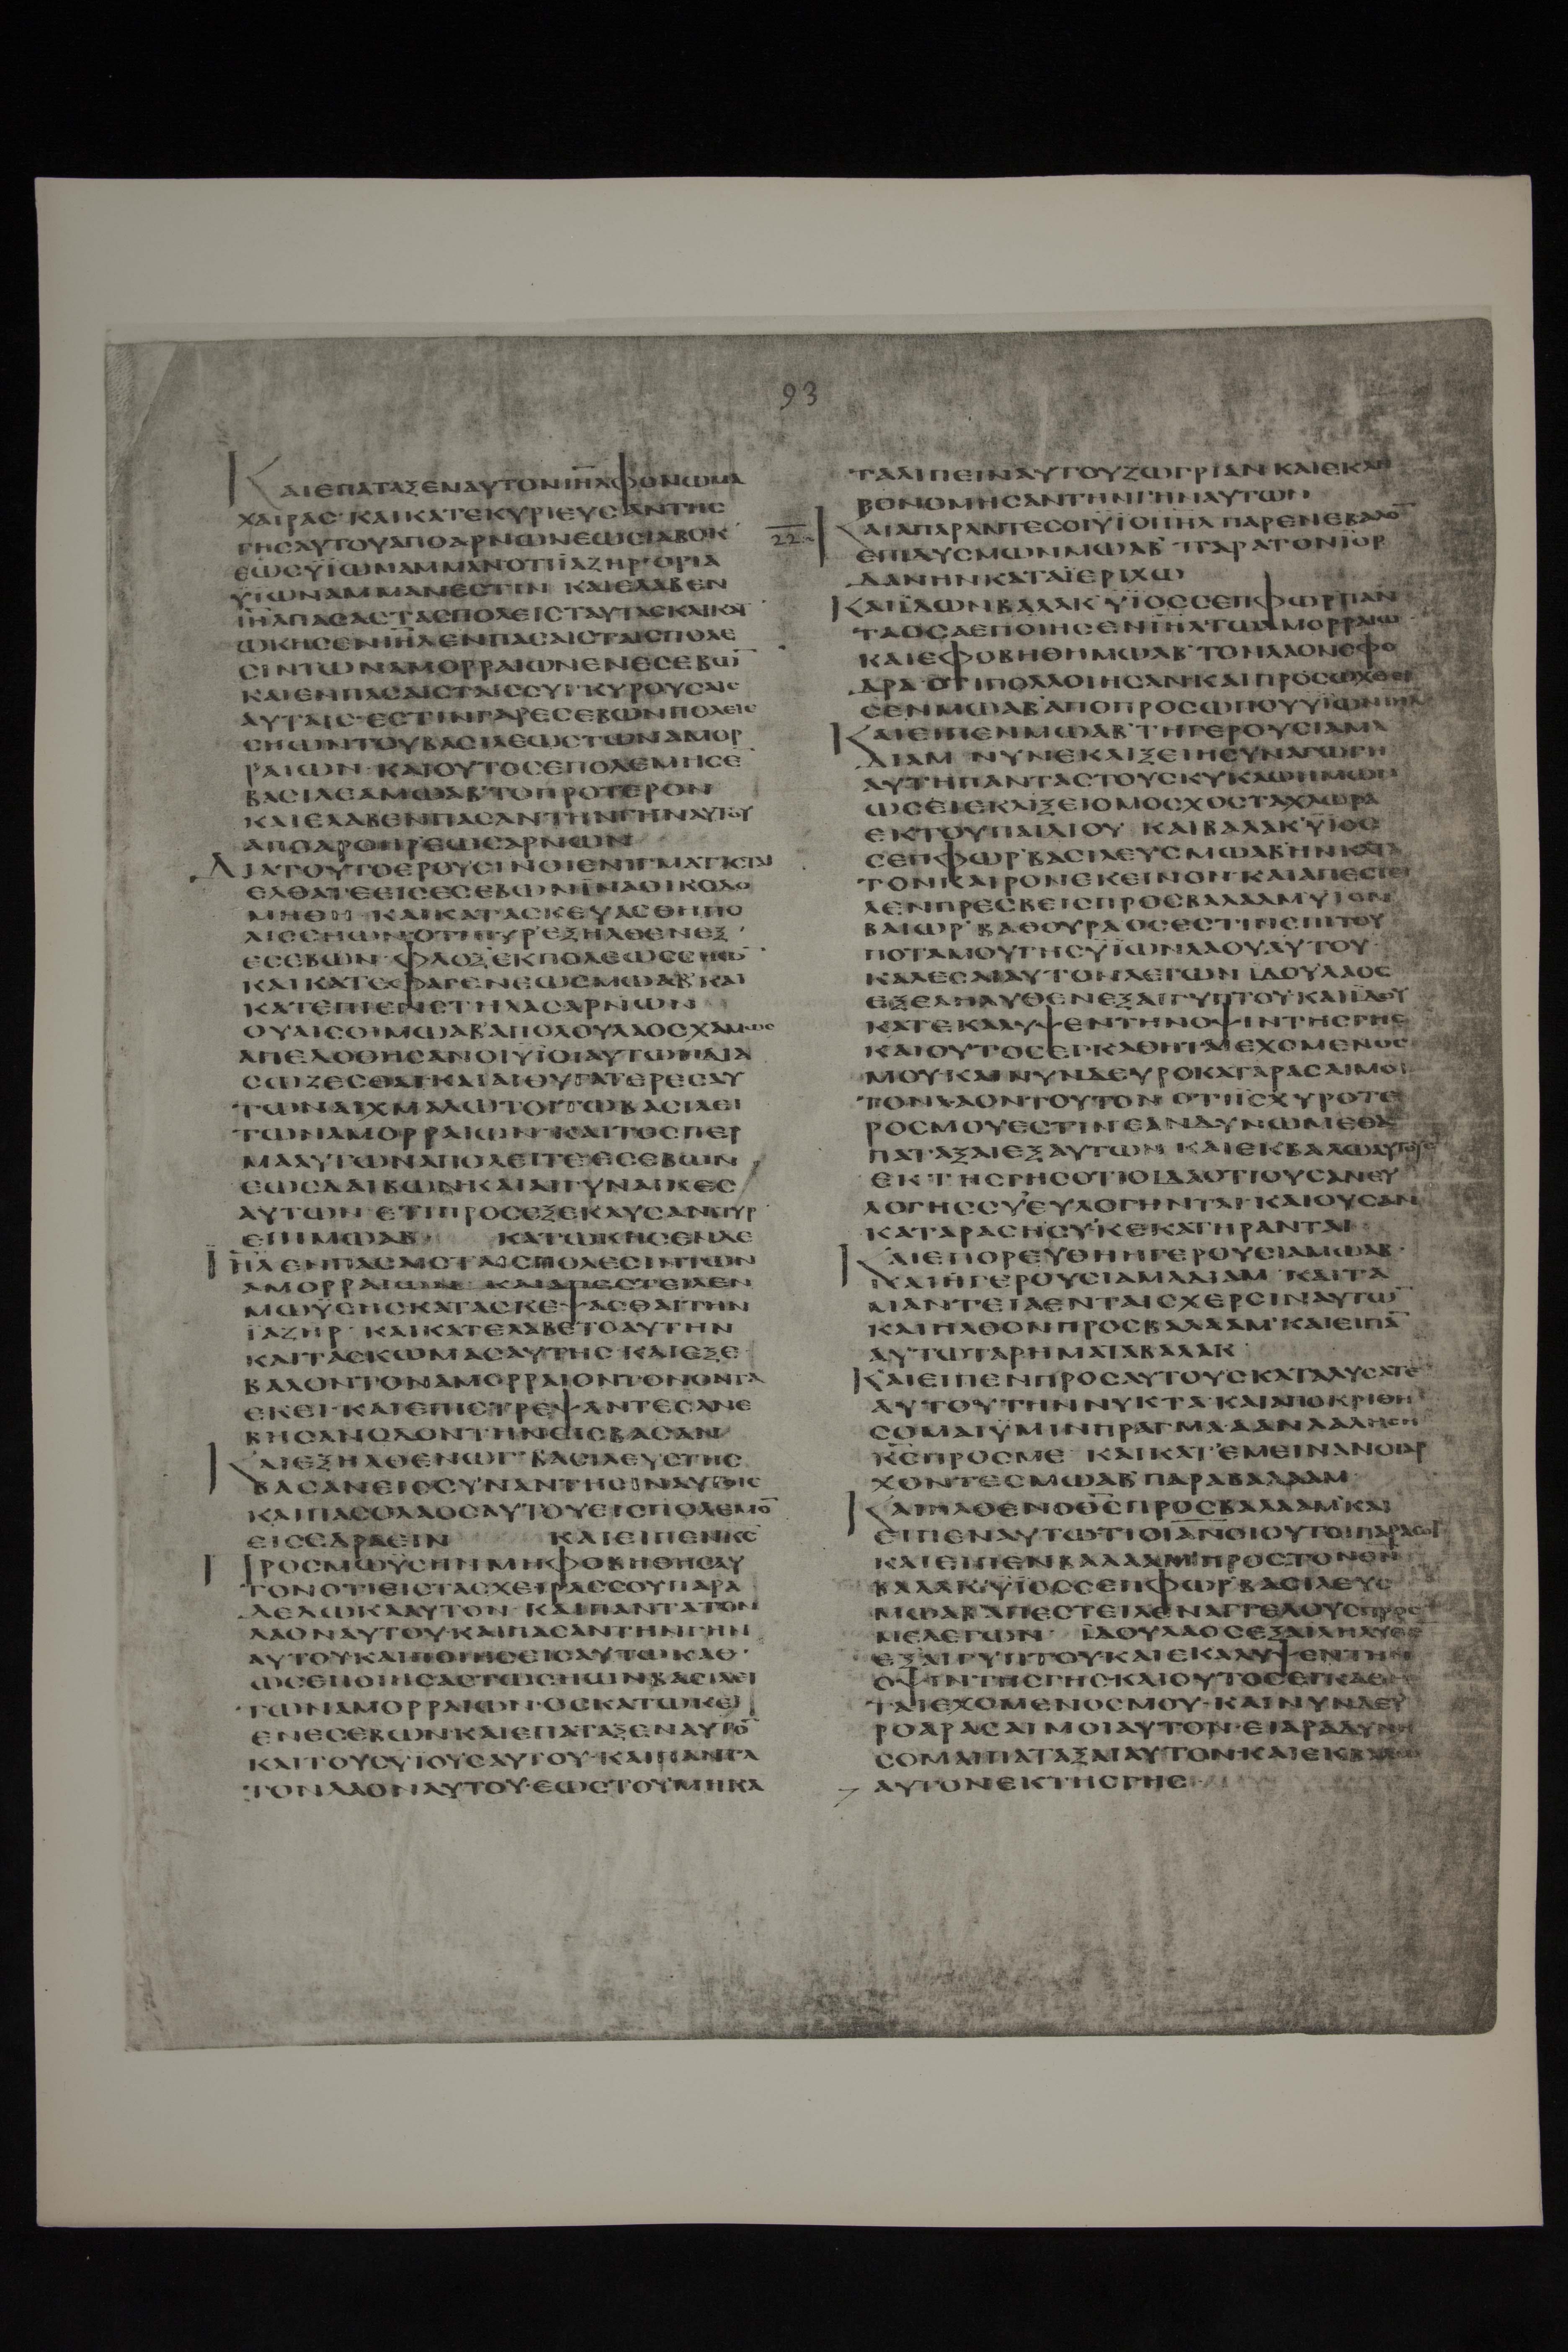 93
ΚΑΙΕΠΑΤΑΞΕΝΑΥΤΟΝΙΗ̅Λ̅ΦΟΝΩΜΑ
ΧΑΙΡΑϹ·ΚΑΙΚΑΤΕΚΥΡΙΕΥϹΑΝΤΗϹ
ΓΗϹΑΥΤΟΥΑΠΟΑΡΝΩΝΕΩϹΙΑΒΟΚ
ΕΩϹΥΪΩΝΑΜΜΑΝΟΤΙΪΑΖΗΡ·ΟΡΙΑ
ΥΪΩΝΑΜΜΑΝΕϹΤΙΝ ΚΑΙΕΛΑΒΕΝ
ΙΗ̅Λ̅ΠΑϹΑϹΤΑϹΠΟΛΕΙϹΤΑΥΤΑϹΚΑΙΚΑΤ
ΩΚΗϹΕΝΙΗ̅Λ̅ΕΝΠΑϹΑΙϹΤΑΙϹΠΟΛΕ
ϹΙΝΤΩΝΑΜΟΡΡΑΙΩΝΕΝΕϹΕΒΩ̅
ΚΑΙΕΝΠΑϹΑΙϹΤΑΙϹϹΥΓΚΥΡΟΥϹΑΙϹ
ΑΥΤΑΙϹ·ΕϹΤΙΝΓΑΡΕϹΕΒΩΝΠΟΛΕΙϹ
ϹΗΩΝΤΟΥΒΑϹΙΛΕΩϹΤΩΝΑΜΟΡ
ΡΑΙΩΝ·ΚΑΙΟΥΤΟϹΕΠΟΛΕΜΗϹΕ
ΒΑϹΙΛΕΑΜΩΑΒ'ΤΟΠΡΟΤΕΡΟΝ
ΚΑΙΕΛΑΒΕΝΠΑϹΑΝΤΗΝΓΗΝΑΥΤΟΥ
ΑΠΟΑΡΟΗΡ'ΕΩϹΑΡΝΩΝ
ΔΙΑΤΟΥΤΟΕΡΟΥϹΙΝΟΙΕΝΙΓΜΑΤΙϹΤΑΙ
ΕΛΘΑΤΕΕΙϹΕϹΕΒΩΝΪΝΑΟΙΚΟΔΟ
ΜΗΘΗ ΚΑΙΚΑΤΑϹΚΕΥΑϹΘΗΠΟ
ΛΙϹϹΗΩΝ·ΟΤΙΠΥΡ'ΕΞΗΛΘΕΝΕΞ'
ΕϹΕΒΩΝ·ΦΛΟΞΕΚΠΟΛΕΩϹϹΗΩ̅
ΚΑΙΚΑΤΕΦΑΓΕΝΕΩϹΜΩΑΒ'ΚΑΙ
ΚΑΤΕΠΙΕΝϹΤΗΛΑϹΑΡΝΩΝ
ΟΥΑΙϹΟΙΜΩΑΒ'ΑΠΟΛΟΥΛΑΟϹΧΑΜΩϹ
ΑΠΕΔΟΘΗϹΑΝΟΙΥΪΟΙΑΥΤΩΝΔΙΑ
ϹΩΖΕϹΘΑΙ·ΚΑΙΑΙΘΥΓΑΤΕΡΕϹΑΥ
ΤΩΝΑΙΧΜΑΛΩΤΟΙΤΩΒΑϹΙΛΕΙ
ΤΩΝΑΜΟΡΡΑΙΩΝ·ΚΑΙΤΟϹΠΕΡ
ΜΑΑΥΤΩΝΑΠΟΛΕΙΤΕΕϹΕΒΩΝ
ΕΩϹΔΑΙΒΩΝ·ΚΑΙΑΙΓΥΝΑΙΚΕϹ
ΑΥΤΩΝ·ΕΤΙΠΡΟϹΕΞΕΚΑΥϹΑΝΠΥΡ
ΕΠΙΜΩΑΒ' ΚΑΤΩΚΗϹΕΝΔΕ
ΙΗ̅Λ̅ΕΝΠΑϹΑΙϹΤΑΙϹΠΟΛΕϹΙΝΤΩΝ
ΑΜΟΡΡΑΙΩΝ ΚΑΙΑΠΕϹΤΕΙΛΕΝ
ΜΩΫϹΗϹΚΑΤΑϹΚΕΨΑϹΘΑΙΤΗΝ
ΪΑΖΗΡ·ΚΑΙΚΑΤΕΛΑΒΕΤΟΑΥΤΗΝ
ΚΑΙΤΑϹΚΩΜΑϹΑΥΤΗϹ·ΚΑΙΕΞΕ
ΒΑΛΟΝΤΟΝΑΜΟΡΡΑΙΟΝΤΟΝΟΝΤΑ
ΕΚΕΙ·ΚΑΙΕΠΙϹΤΡΕΨΑΝΤΕϹΑΝΕ
ΒΗϹΑΝΟΔΟΝΤΗΝΕΙϹΒΑϹΑΝ
ΚΑΙΕΞΗΛΘΕΝΩΓ'ΒΑϹΙΛΕΥϹΤΗϹ
ΒΑϹΑΝΕΙϹϹΥΝΑΝΤΗϹΙΝΑΥΤΟΙϹ
ΚΑΙΠΑϹΟΛΑΟϹΑΥΤΟΥΕΙϹΠΟΛΕΜΟ̅
ΕΙϹΕΔΡΑΕΙΝ ΚΑΙΕΙΠΕΝΚ̅Ϲ̅
ΠΡΟϹΜΩΫϹΗΝΜΗΦΟΒΗΘΗϹΑΥ
ΤΟΝΟΤΙΕΙϹΤΑϹΧΕΙΡΑϹϹΟΥΠΑΡΑ
ΔΕΔΩΚΑΑΥΤΟΝ·ΚΑΙΠΑΝΤΑΤΟΝ
ΛΑΟΝΑΥΤΟΥ·ΚΑΙΠΑϹΑΝΤΗΝΓΗΝ
ΑΥΤΟΥΚΑΙΠΟΙΗϹΕΙϹΑΥΤΩΚΑΘ'
ΩϹΕΠΟΙΗϹΑϹΤΩϹΗΩΝΒΑϹΙΛΕΙ
ΤΩΝΑΜΟΡΡΑΙΩΝ·ΟϹΚΑΤΩΚΕΙ
ΕΝΕϹΕΒΩΝ·ΚΑΙΕΠΑΤΑΞΕΝΑΥΤΟ̅
ΚΑΙΤΟΥϹΥΪΟΥϹΑΥΤΟΥ·ΚΑΙΠΑΝΤΑ
ΤΟΝΛΑΟΝΑΥΤΟΥ·ΕΩϹΤΟΥΜΗΚΑ
ΤΑΛΙΠΕΙΝΑΥΤΟΥΖΩΓΡΙΑΝ·ΚΑΙΕΚΛΗ
ΡΟΝΟΜΗϹΑΝΤΗΝΓΗΝΑΥΤΩΝ
22. ΚΑΙΑΠΑΡΑΝΤΕϹΟΙΥΪΟΙΙΗ̅Λ̅ΠΑΡΕΝΕΒΑΛΟ̅
ΕΠΙΔΥϹΜΩΝΜΩΑΒ'ΠΑΡΑΤΟΝΪΟΡ
ΔΑΝΗΝΚΑΤΑΪΕΡΙΧΩ
ΚΑΙΪΔΩΝΒΑΛΑΚ'ΥΪΟϹϹΕΠΦΩΡΠΑΝ
ΤΑΟϹΑΕΠΟΙΗϹΕΝΙΗ̅Λ̅ΤΩΑΜΟΡΡΑΙΩ
ΚΑΙΕΦΟΒΗΘΗΜΩΑΒ'ΤΟΝΛΑΟΝϹΦΟ
ΔΡΑ·ΟΤΙΠΟΛΛΟΙΗϹΑΝ·ΚΑΙΠΡΟϹΩΧΘΕΙ
ϹΕΝΜΩΑΒ'ΑΠΟΠΡΟϹΩΠΟΥΥΪΩΝΙΗ̅Λ̅
ΚΑΙΕΙΠΕΝΜΩΑΒ'ΤΗΓΕΡΟΥϹΙΑΜΑ
ΔΙΑΜ ΝΥΝΕΚΛΙΞΕΙΗϹΥΝΑΓΩΓΗ
ΑΥΤΗΠΑΝΤΑϹΤΟΥϹΚΥΚΛΩΗΜΩΝ
ΩϹΕΙΕΚΛΙΞΕΙΟΜΟϹΧΟϹΤΑΧΛΩΡΑ
ΕΚΤΟΥΠΑΙΔΙΟΥ ΚΑΙΒΑΛΑΚ'ΥΪΟϹ
ϹΕΠΦΩΡ'ΒΑϹΙΛΕΥϹΜΩΑΒ'ΗΝΚΑΤΑ
ΤΟΝΚΑΙΡΟΝΕΚΕΙΝΟΝ·ΚΑΙΑΠΕϹΤΕΙ
ΛΕΝΠΡΕϹΒΕΙϹΠΡΟϹΒΑΛΑΑΜΥΪΟΝ
ΒΑΙΩΡ'ΒΑΘΟΥΡΑΟϹΕϹΤΙΝΕΠΙΤΟΥ
ΠΟΤΑΜΟΥΓΗϹΥΪΩΝΛΑΟΥΑΥΤΟΥ
ΚΑΛΕϹΑΙΑΥΤΟΝΛΕΓΩΝ ΙΔΟΥΛΑΟϹ
ΕΞΕΛΗΛΥΘΕΝΕΞΑΙΓΥΠΤΟΥ·ΚΑΙΪΔΟΥ
ΚΑΤΕΚΑΛΥΨΕΝΤΗΝΟΨΙΝΤΗϹΓΗϹ
ΚΑΙΟΥΤΟϹΕΓΚΑΘΗΤΑΙΕΧΟΜΕΝΟϹ
ΜΟΥ·ΚΑΙΝΥΝΔΕΥΡΟΚΑΤΑΡΑϹΑΙΜΟΙ
ΤΟΝΛΑΟΝΤΟΥΤΟΝ·ΟΤΙΪϹΧΥΡΟΤΕ
ΡΟϹΜΟΥΕϹΤΙΝΕΑΝΔΥΝΩΜΕΘΑ
ΠΑΤΑΞΑΙΕΞΑΥΤΩΝ ΚΑΙΕΚΒΑΛΩΑΥΤΟΥϹ
ΕΚΤΗϹΓΗϹΟΤΙΟΙΔΑΟΤΙΟΥϹΑΝΕΥ
ΛΟΓΗϹϹΥ'ΕΥΛΟΓΗΝΤΑΙ·ΚΑΙΟΥϹΑΝ
ΚΑΤΑΡΑϹΗϹΥ'ΚΕΚΑΤΗΡΑΝΤΑΙ
ΚΑΙΕΠΟΡΕΥΘΗΗΓΕΡΟΥϹΙΑΜΩΑΒ·
ΚΑΙΗΓΕΡΟΥϹΙΑΜΑΔΙΑΜ ΚΑΙΤΑ
ΜΑΝΤΕΙΑΕΝΤΑΙϹΧΕΡϹΙΝΑΥΤΩ̅
ΚΑΙΗΛΘΟΝΠΡΟϹΒΑΛΑΑΜ'ΚΑΙΕΙΠΑ̅
ΑΥΤΩΤΑΡΗΜΑΤΑΒΑΛΑΚ
ΚΑΙΕΙΠΕΝΠΡΟϹΑΥΤΟΥϹΚΑΤΑΛΥϹΑΤΕ
ΑΥΤΟΥΤΗΝΝΥΚΤΑ·ΚΑΙΑΠΟΚΡΙΘΗ
ϹΟΜΑΙΫΜΙΝΠΡΑΓΜΑ·ΑΑΝΛΑΛΗϹΗ
Κ̅Ϲ̅ΠΡΟϹΜΕ ΚΑΙΚΑΤΕΜΕΙΝΑΝΟΙΑΡ
ΧΟΝΤΕϹΜΩΑΒ'ΠΑΡΑΒΑΛΑΑΜ
ΚΑΙΗΛΘΕΝΟΘ̅Ϲ̅ΠΡΟϹΒΑΛΑΑΜ'ΚΑΙ
ΕΙΠΕΝΑΥΤΩΤΙΟΙΑ̅Ν̅Ο̅Ι̅ΟΥΤΟΙΠΑΡΑϹΟΙ
ΚΑΙΕΙΠΕΝΒΑΛΑΑΜ'ΠΡΟϹΤΟΝΘ̅Ν̅
ΒΑΛΑΚ'ΥΪΟϹϹΕΠΦΩΡ'ΒΑϹΙΛΕΥϹ
ΜΩΑΒ'ΑΠΕϹΤΕΙΛΕΝΑΓΓΕΛΟΥϹΠΡΟϹ
ΜΕΛΕΓΩΝ· ΪΔΟΥΛΑΟϹΕΞΕΛΗΛΥΘΕ
ΕΞΑΙΓΥΠΤΟΥ·ΚΑΙΕΚΑΛΥΨΕΝΤΗΝ
ΟΨΙΝΤΗϹΓΗϹ·ΚΑΙΟΥΤΟϹΕΓΚΑΘΗ
ΤΑΙΕΧΟΜΕΝΟϹΜΟΥ·ΚΑΙΝΥΝΔΕΥ
ΡΟΑΡΑϹΑΙΜΟΙΑΥΤΟΝ·ΕΙΑΡΑΔΥΝΗ
ϹΟΜΑΙΠΑΤΑΞΑΙΑΥΤΟΝ·ΚΑΙΕΚΒΑΛΩ
ΑΥΤΟΝΕΚΤΗϹΓΗϹ·